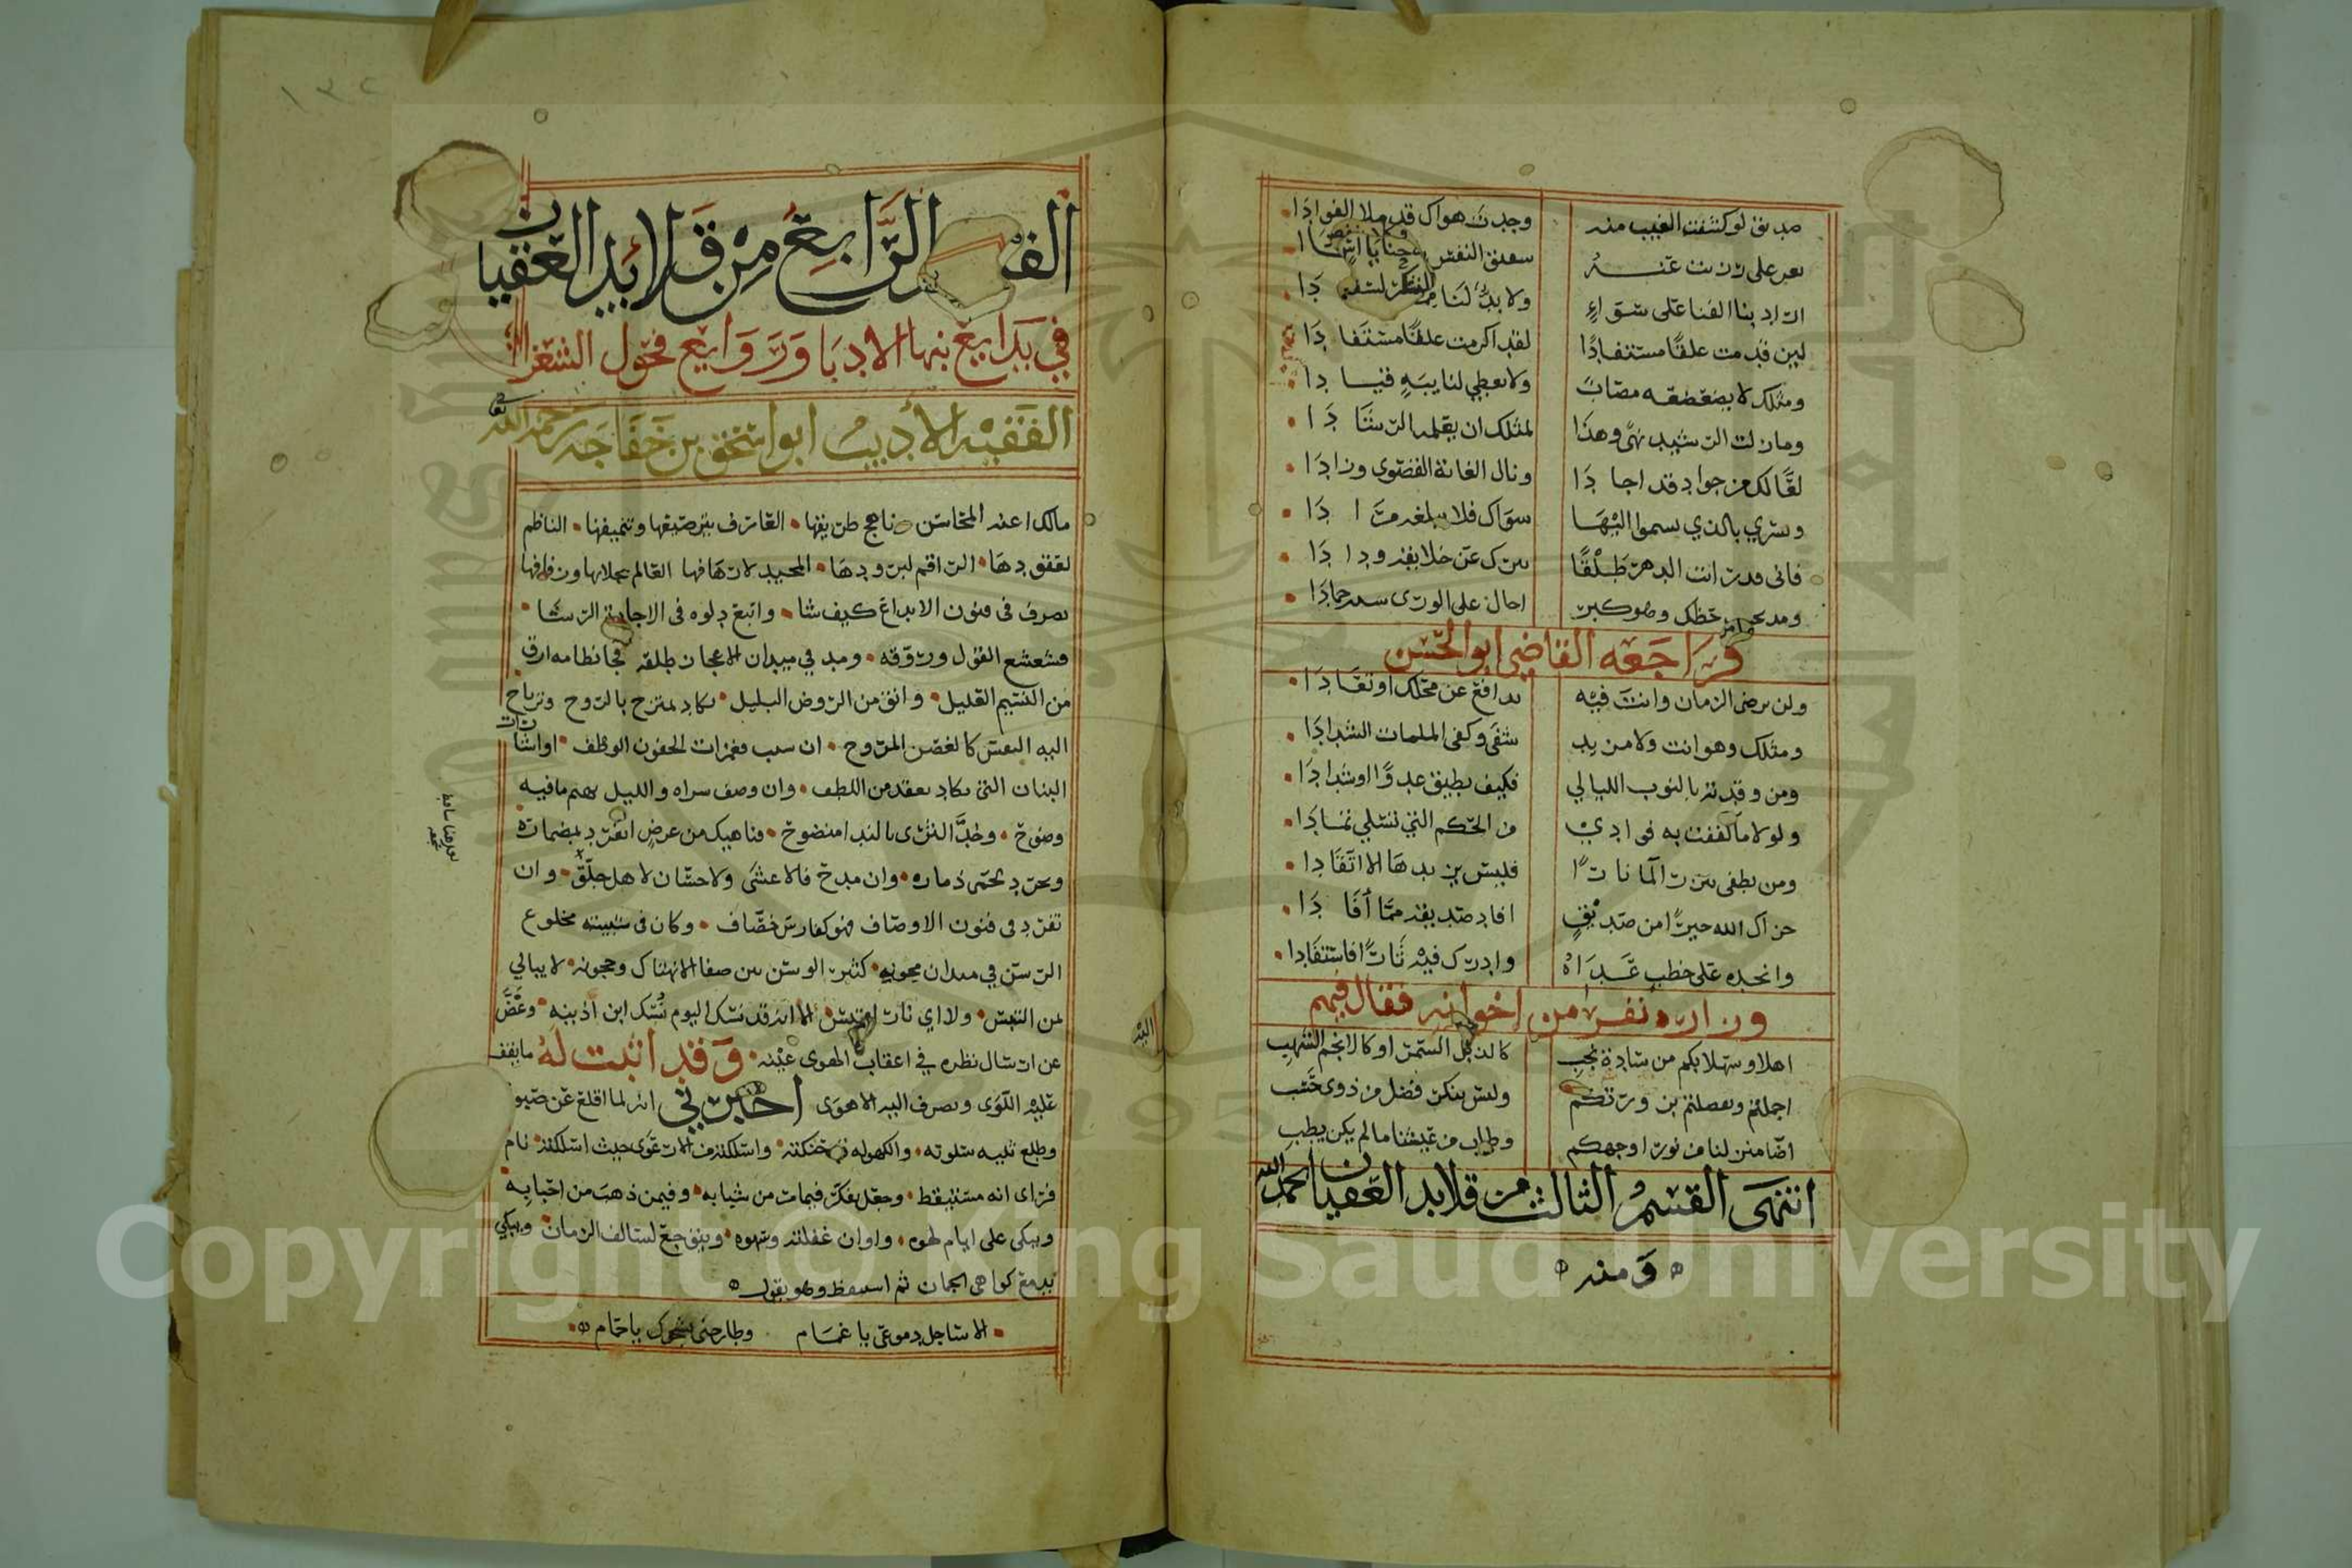 صديق لو كشفت الغيب منه وجدت هواك قد ملا الفوادا
يعز على
اراد بنا الفنا على سواء ولا بد لنا
لين قدمت علقا مستفادا لقد اكرمت علقا مستفادا
ومثلك لا يضعضعه مصاب ولا يعطي لنايبة قيادا
ومازلت الرشيد نهى وهذا لمثلك ان يقلد الرشادا
لعا لك من جواد قد اجادا ونال الغاية القصوى وزادا
وتسري بالذي يسموا اليها سواك فلا يبلغه مرادا
فاني
ومد
فراجعه القاضي ابو الحسن
ولن يرضى الزمان وانت فيه يدافع عن محلك او تعادا
ومثلك وهو انت ولا مزيد شفى وكفى الملمات الشدادا
ومن وقدته بالنوب الليالي فكيف يطيق عدوا او شدادا
ولولا ما كففت به فوادي من الحكم التي تشلي تمادا
ومن يطفى فليس يزيدها الا اتقادا
جزاك الله خيرا من صديق افاد صديقه مما أفادا
وانجده على خطب عداه وادرك فيه ثارا فاستقادا
وزاره نفر من اخوانه فقال فيهم
اهلا وسهلا بكم من سادة نجب كالذبل السمر او كالانجم الشهب
اجملتم وتفضلتم بزورتكم وليس ينكر فضل من ذوى حسب
اضا من لنا من نور اوجهكم وطاب من عيشنا ما لم يكن يطب
انتهى القسم الثالث من قلايد العقيان الحمد لله
ومنه
١٣٢
القسم الرابع من قلايد العقيان
في بدايع نبها الادبا وروايع فحول الشعرا
الفقيه الاديب ابو اسحق بن خفاجه رحمه الله تعالى
مالك اعنه المحاسن وناهج طريقها العارف بترصيعها وتنميقها الناظم
لعقودها الراقم لبرودها المجيد لارهافها العالم بجلايها وزفافها
تصرف في فنون الابداع كيف شا واتبع دلوه في الاجادة الرشا
فشعشع القول وروقه ومد في ميدان الاعجاز طلقه فجا نظامه ارق
من النسيم العليل وانق من الروض البليل يكاد يمتزج بالروح وترتاح
اليه النفس كالغصن المروح ان شبب فغمزات الجفون الوطف او اشارات
البنان التي تكاد تعقد من اللطف وان وصف سراه والليل بهيم ما فيه
وضوح وخد الثرى بالندا منضوح فناهيك من عرض انفرد بمضماره
وتجرد بحمى ذماره وان مدح فلا عشى ولا حسان لاهل جلق وان
تفرد في فنون الاوصاف فهو كفارس خصاف وكان في شبيبته مخلوع
الرسن في ميدان مجونه كثير الوسن بين صفا الانهتاك وحجونه لا يبالي
لمن التبس ولا اي نار اقتبس الا انه قد نسك اليوم نسك ابن اذينه وغض
عن ارسال نظره في اعقاب الهوى عينه وقد اثبت له ما يقف
عليه اللوى وتصرف اليه الاهوى اخبرني انه لما اقلع عن صبوته
وطلع ثنيه سلوته والكهوله قد حنكته واسلكته من الارعوى حيث اسلكته نام
فراى انه مستيقظ وجعل يفكر فيما مات من شبابه وفيمن ذهب من احبابه
ويبكي على ايام لهوه واوان غفلته وسهوه ويتوجع لسالف الزمان ويبكي
بدمع كواهى الجمان ثم استيقظ وهو يقول
الا ساجل دموعي يا غمام وطارحني بشجوك يا حمام
Copyright © King Saud University